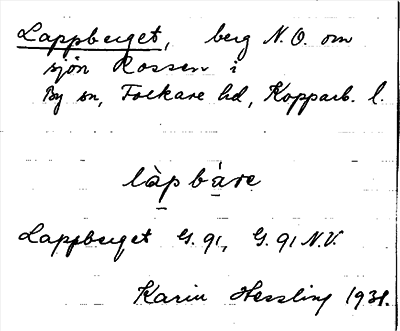 Lappberget, berg N.O. om
sjön Rossen i
By sn, Folkare hd, Kopparb. l.
làpbárẹ
Lappberget G. 91, G. 91 N.V.
Karin Hessling 1931.